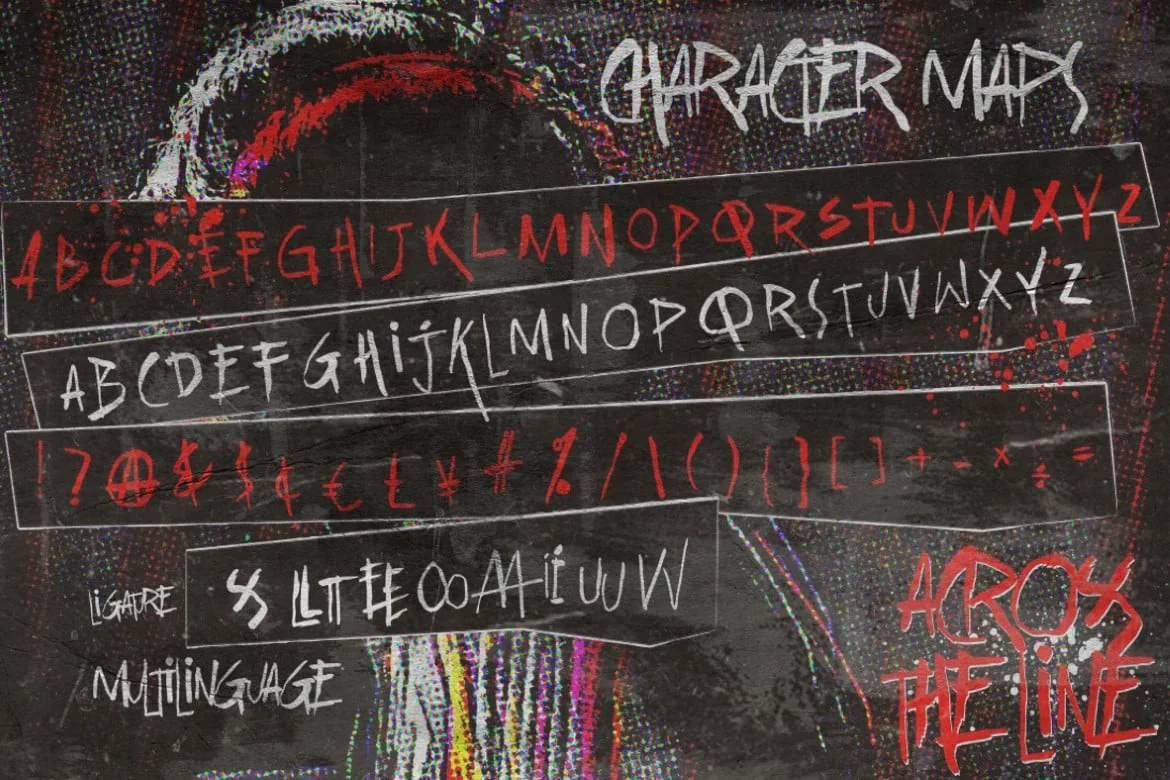 CHARACTER MAPS
A B C D E F G H I J K L M N O P Q R S T U V W X Y Z
A B C D E F G H i j K L M N O P Q R S T U V W X Y Z
! ? @ & $ ¢ € £ ¥ # % / \ ( ) { } [ ] + - × ÷ =
LiGATURE
SS LL TT EE OO AA II UU VV
MULTILINGUAGE
ACROSS
THE LiNE